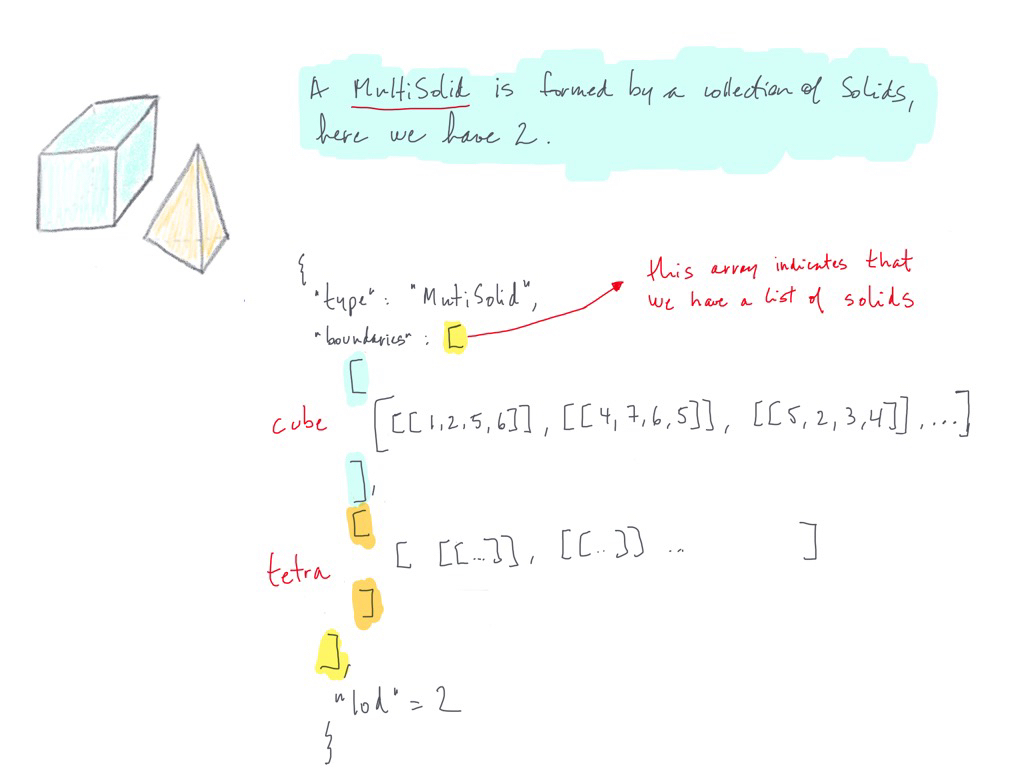 A MultiSolid is formed by a collection of Solids,
here we have 2.
{
"type": "MutiSolid",
"boundaries": [
this array indicates that
we have a list of solids
[
cube [[[1,2,5,6]], [[4,7,6,5]], [[5,2,3,4]], ...]
],
[
tetra [ [[...]], [[..]] ... ]
]
],
"lod" = 2
}